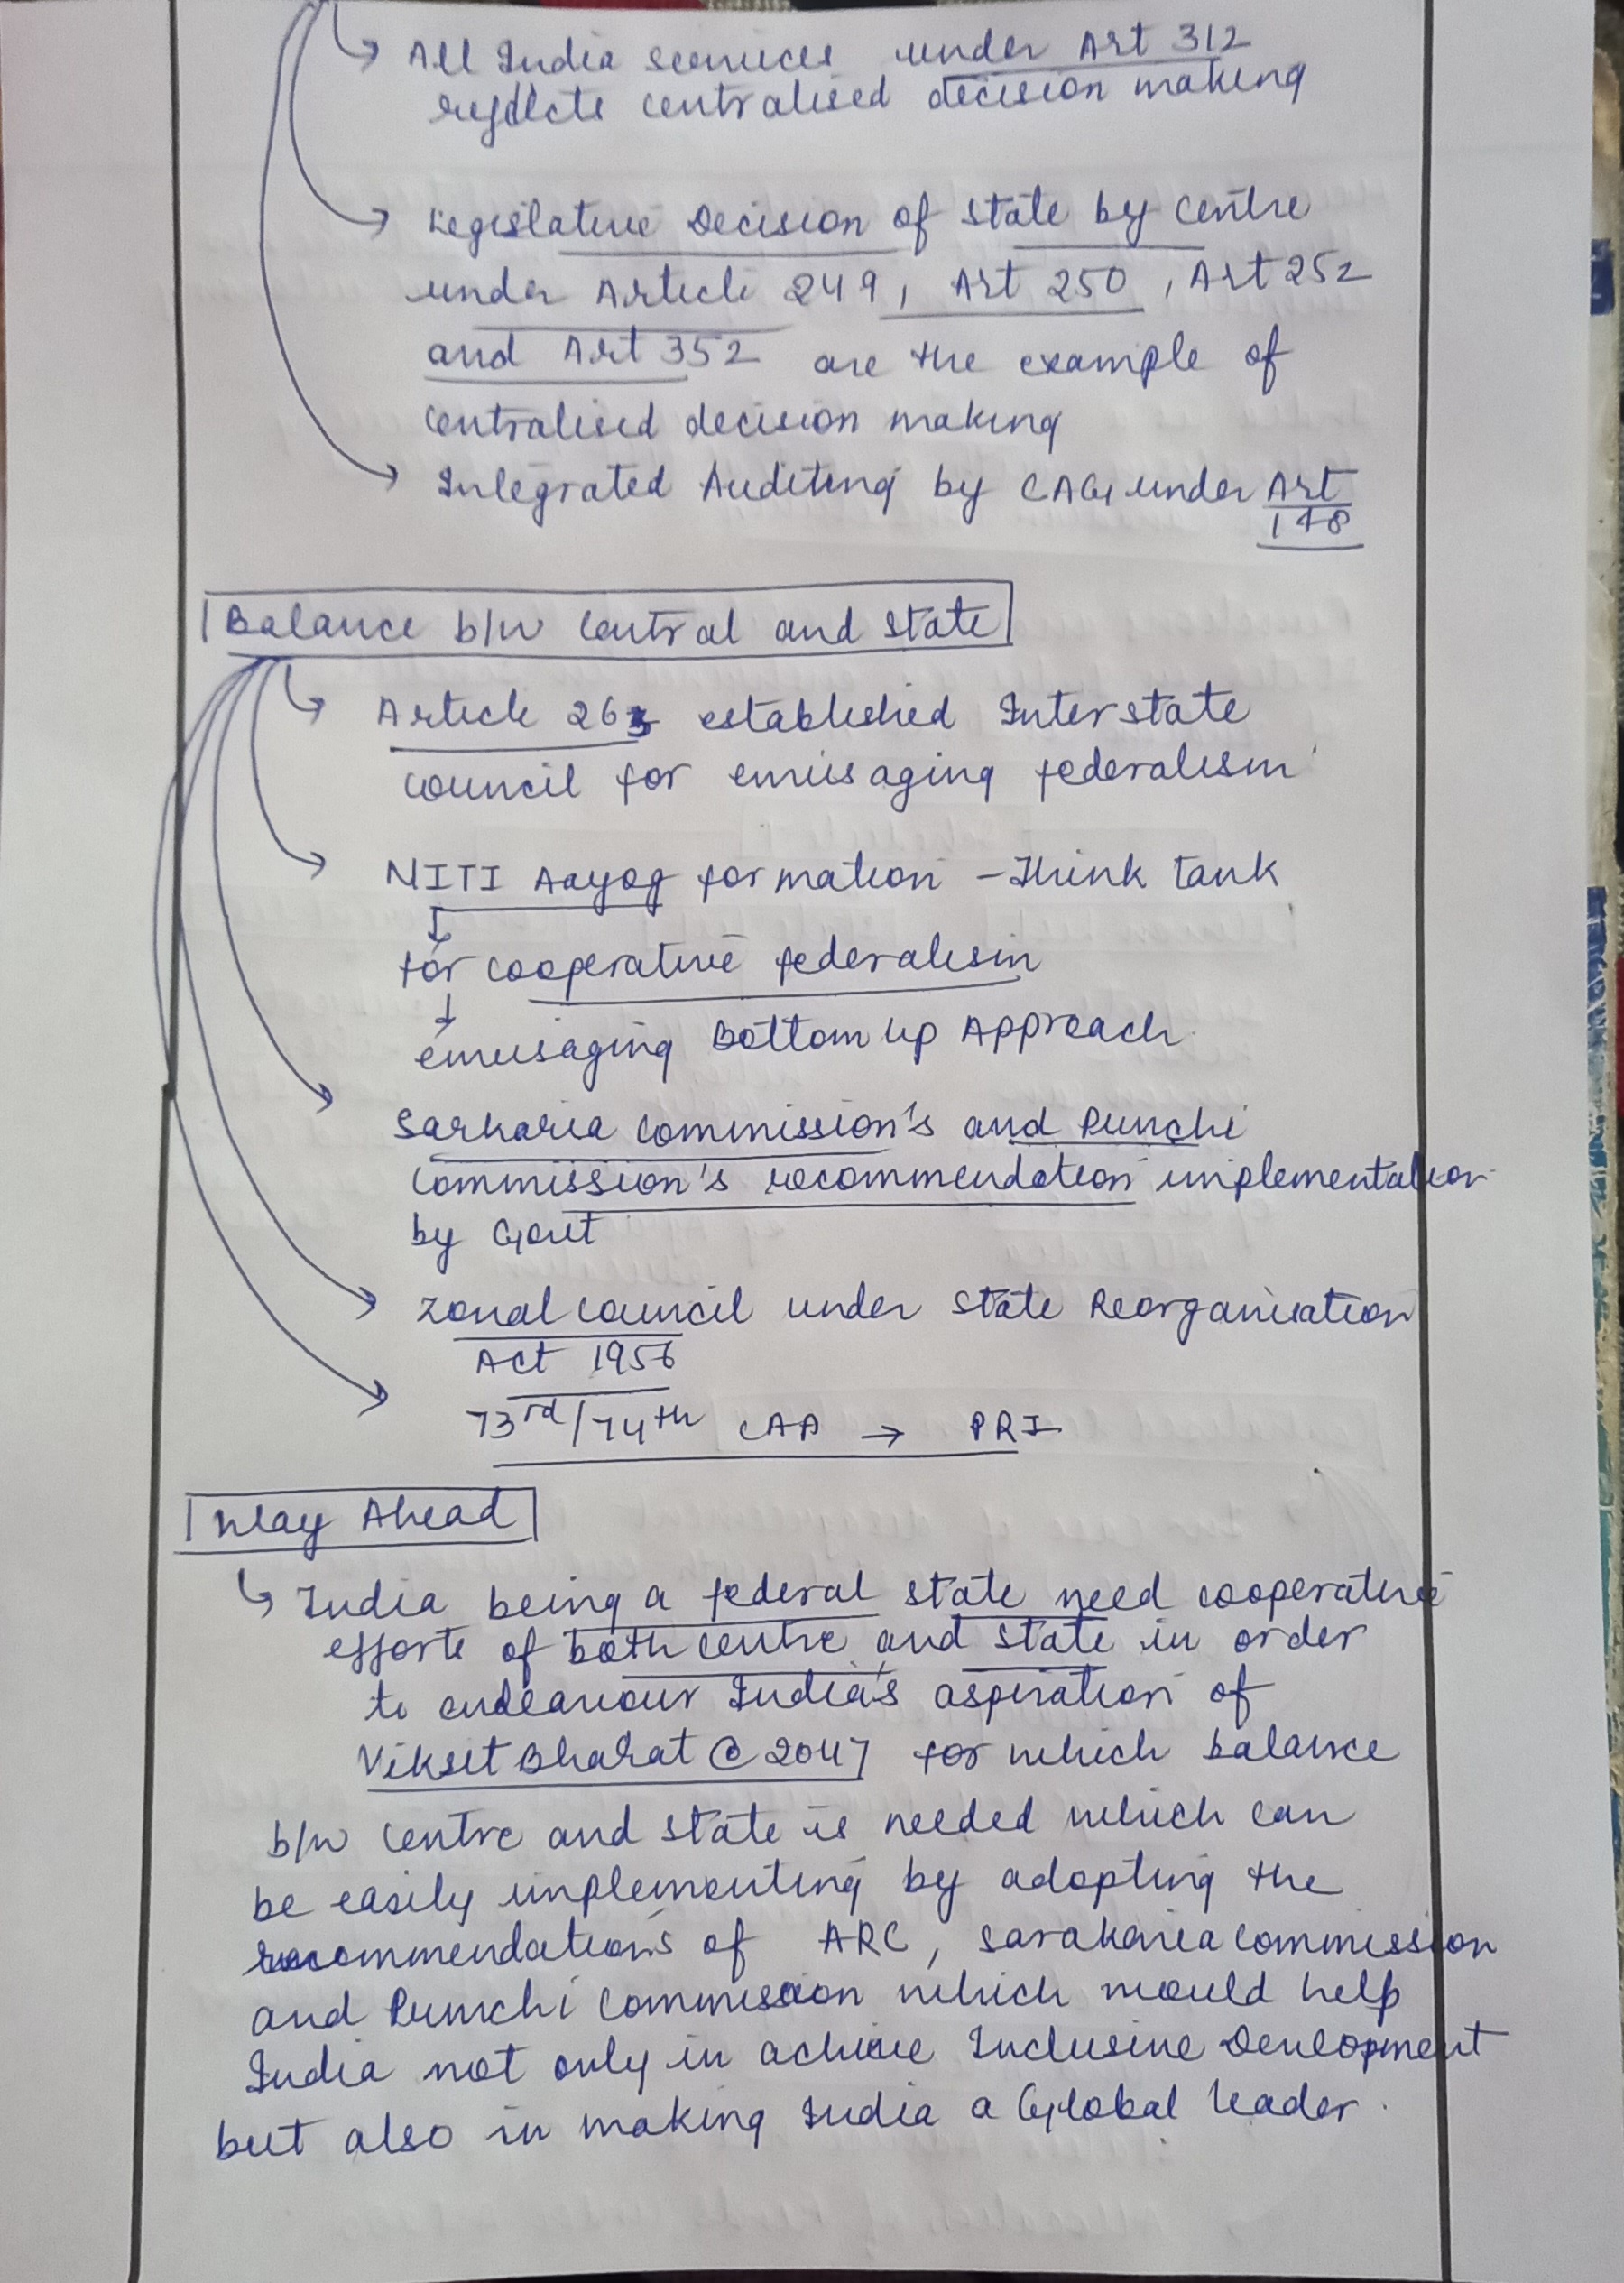 All India services under Art 312
reflects centralised decision making
Legislative Decision of state by centre
under Article 249, Art 250, Art 252
and Art 352 are the example of
centralised decision making
Integrated Auditing by CAG under Art
148
Balance b/w Central and State
Article 263 established Interstate
council for envisaging federalism
NITI Aayog formation - Think tank
for cooperative federalism
envisaging Bottom up Approach
Sarkaria Commission's and Punchi
Commission's recommendation implementation
by Govt
Zonal council under State Reorganisation
Act 1956
73rd/74th CAA → PRI
Way Ahead
India being a federal state need cooperative
efforts of both centre and state in order
to endeavour India's aspiration of
Viksit Bharat @ 2047 for which balance
b/w centre and state is needed which can
be easily implementing by adopting the
recommendations of ARC, Sarakaria Commission
and Punchi Commission which would help
India not only in achieve Inclusive Development
but also in making India a Global leader.